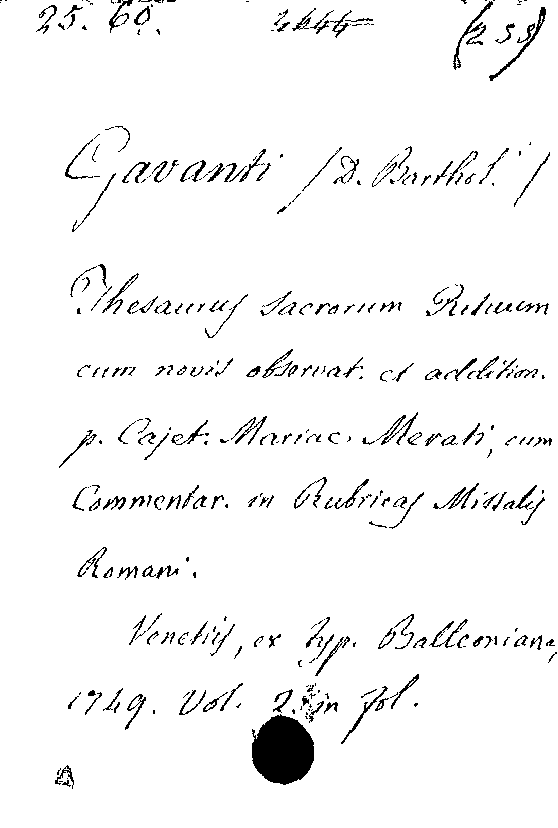 25. 60. 2644 (2 SS)
Gavanti /D. Barthol./
Thesaurus sacrorum Rituum
cum novis observat. et addition.
p. Cajet. Mariae Merati, cum
Commentar. in Rubricas Missalis
Romani.
Venetiis, ex typ. Balleoniana,
1749. Vol. 2. in fol.